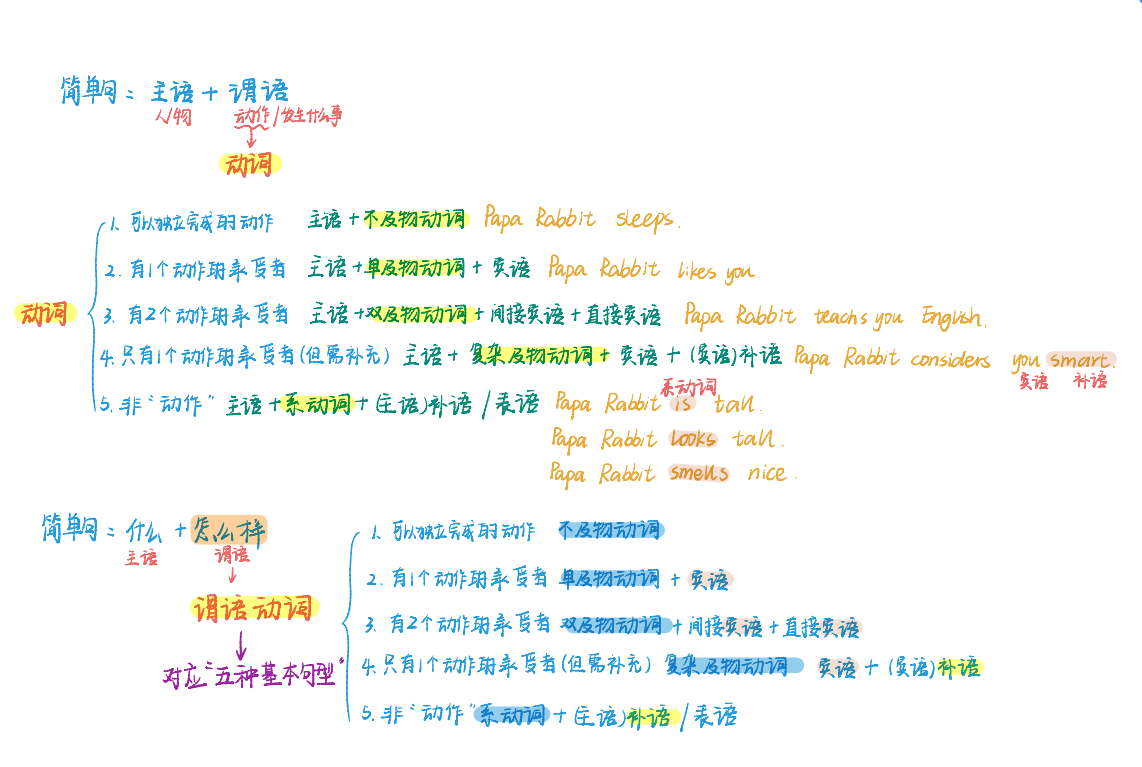 简单句 = 主语 + 谓语
人/物 动作/发生什么事
动词
动词
1. 可以独立完成的动作 主语+不及物动词 Papa Rabbit sleeps.
2. 有1个动作的承受者 主语+单及物动词+宾语 Papa Rabbit likes you.
3. 有2个动作的承受者 主语+双及物动词+间接宾语+直接宾语 Papa Rabbit teachs you English.
4. 只有1个动作的承受者(但需补充) 主语+复杂及物动词+宾语+(宾语)补语 Papa Rabbit considers you smart.
宾语 补语
系动词
5. 非“动作” 主语+系动词+(主语)补语/表语 Papa Rabbit is tall.
Papa Rabbit looks tall.
Papa Rabbit smells nice.
简单句 = 什么 + 怎么样
主语 谓语
谓语动词
对应“五种基本句型”
1. 可以独立完成的动作 不及物动词
2. 有1个动作的承受者 单及物动词 + 宾语
3. 有2个动作的承受者 双及物动词+间接宾语+直接宾语
4. 只有1个动作的承受者(但需补充) 复杂及物动词 宾语+(宾语)补语
5. 非“动作” 系动词+(主语)补语/表语